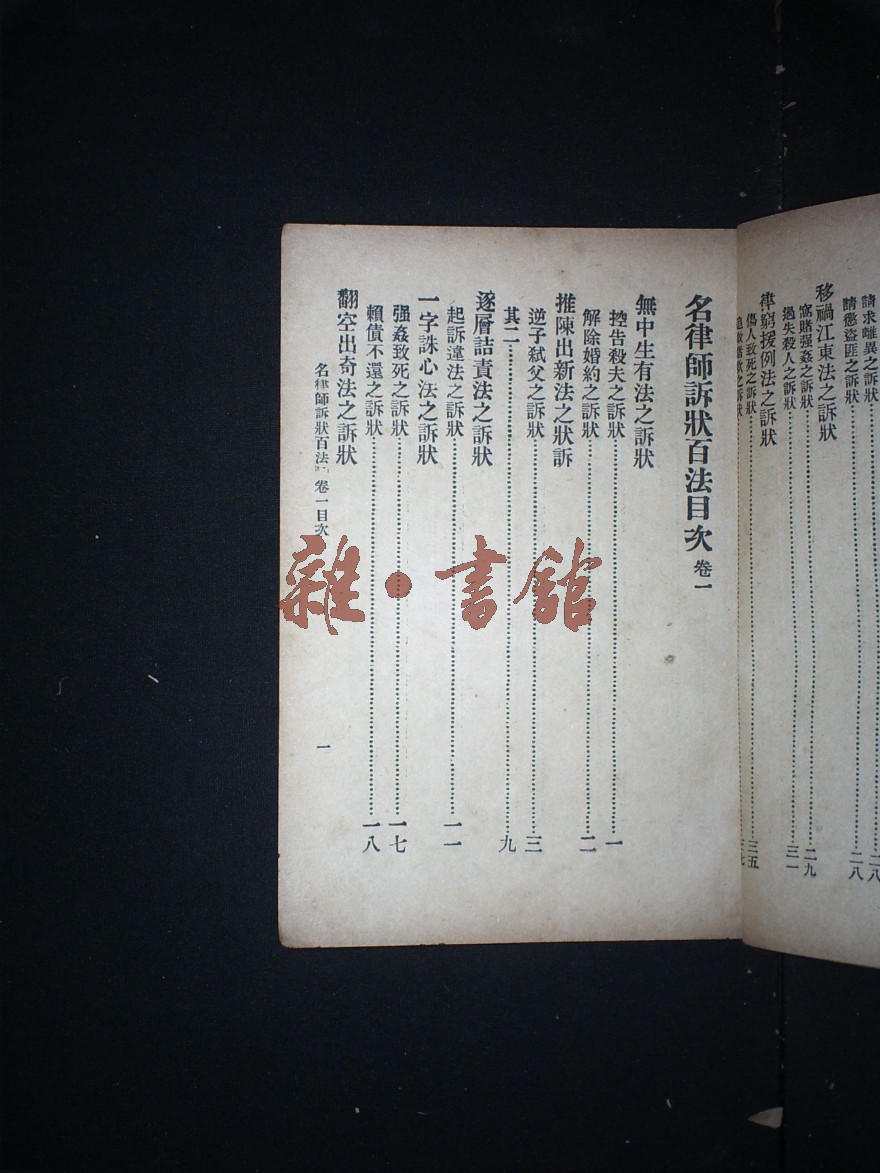 請求離異之訴狀⋯⋯二八
請懲盜匪之訴狀⋯⋯二八
移禍江東法之訴狀
窩賭强姦之訴狀⋯⋯二九
過失殺人之訴狀⋯⋯三一
律窮援例法之訴狀
傷人致死之訴狀⋯⋯三五
名律師訴狀百法目次 卷一
無中生有法之訴狀
控告殺夫之訴狀⋯⋯一
解除婚約之訴狀⋯⋯二
推陳出新法之狀訴
逆子弒父之訴狀⋯⋯三
其二⋯⋯九
逐層詰責法之訴狀
起訴違法之訴狀⋯⋯一一
一字誅心法之訴狀
强姦致死之訴狀⋯⋯一七
賴債不還之訴狀⋯⋯一八
翻空出奇法之訴狀
名律師訴狀百法 卷一目次
一
雜·書館